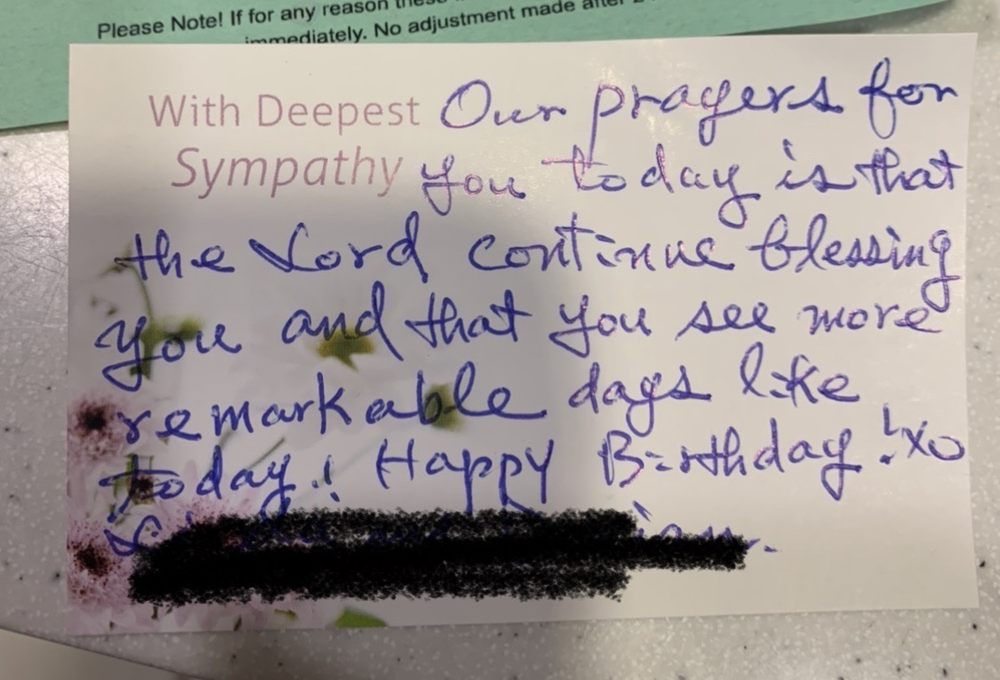 Please Note! If for any reason
immediately. No adjustment made after
With Deepest
Sympathy
Our prayers for
you today is that
the Lord continue blessing
you and that you see more
remarkable days like
today! Happy Birthday! xo